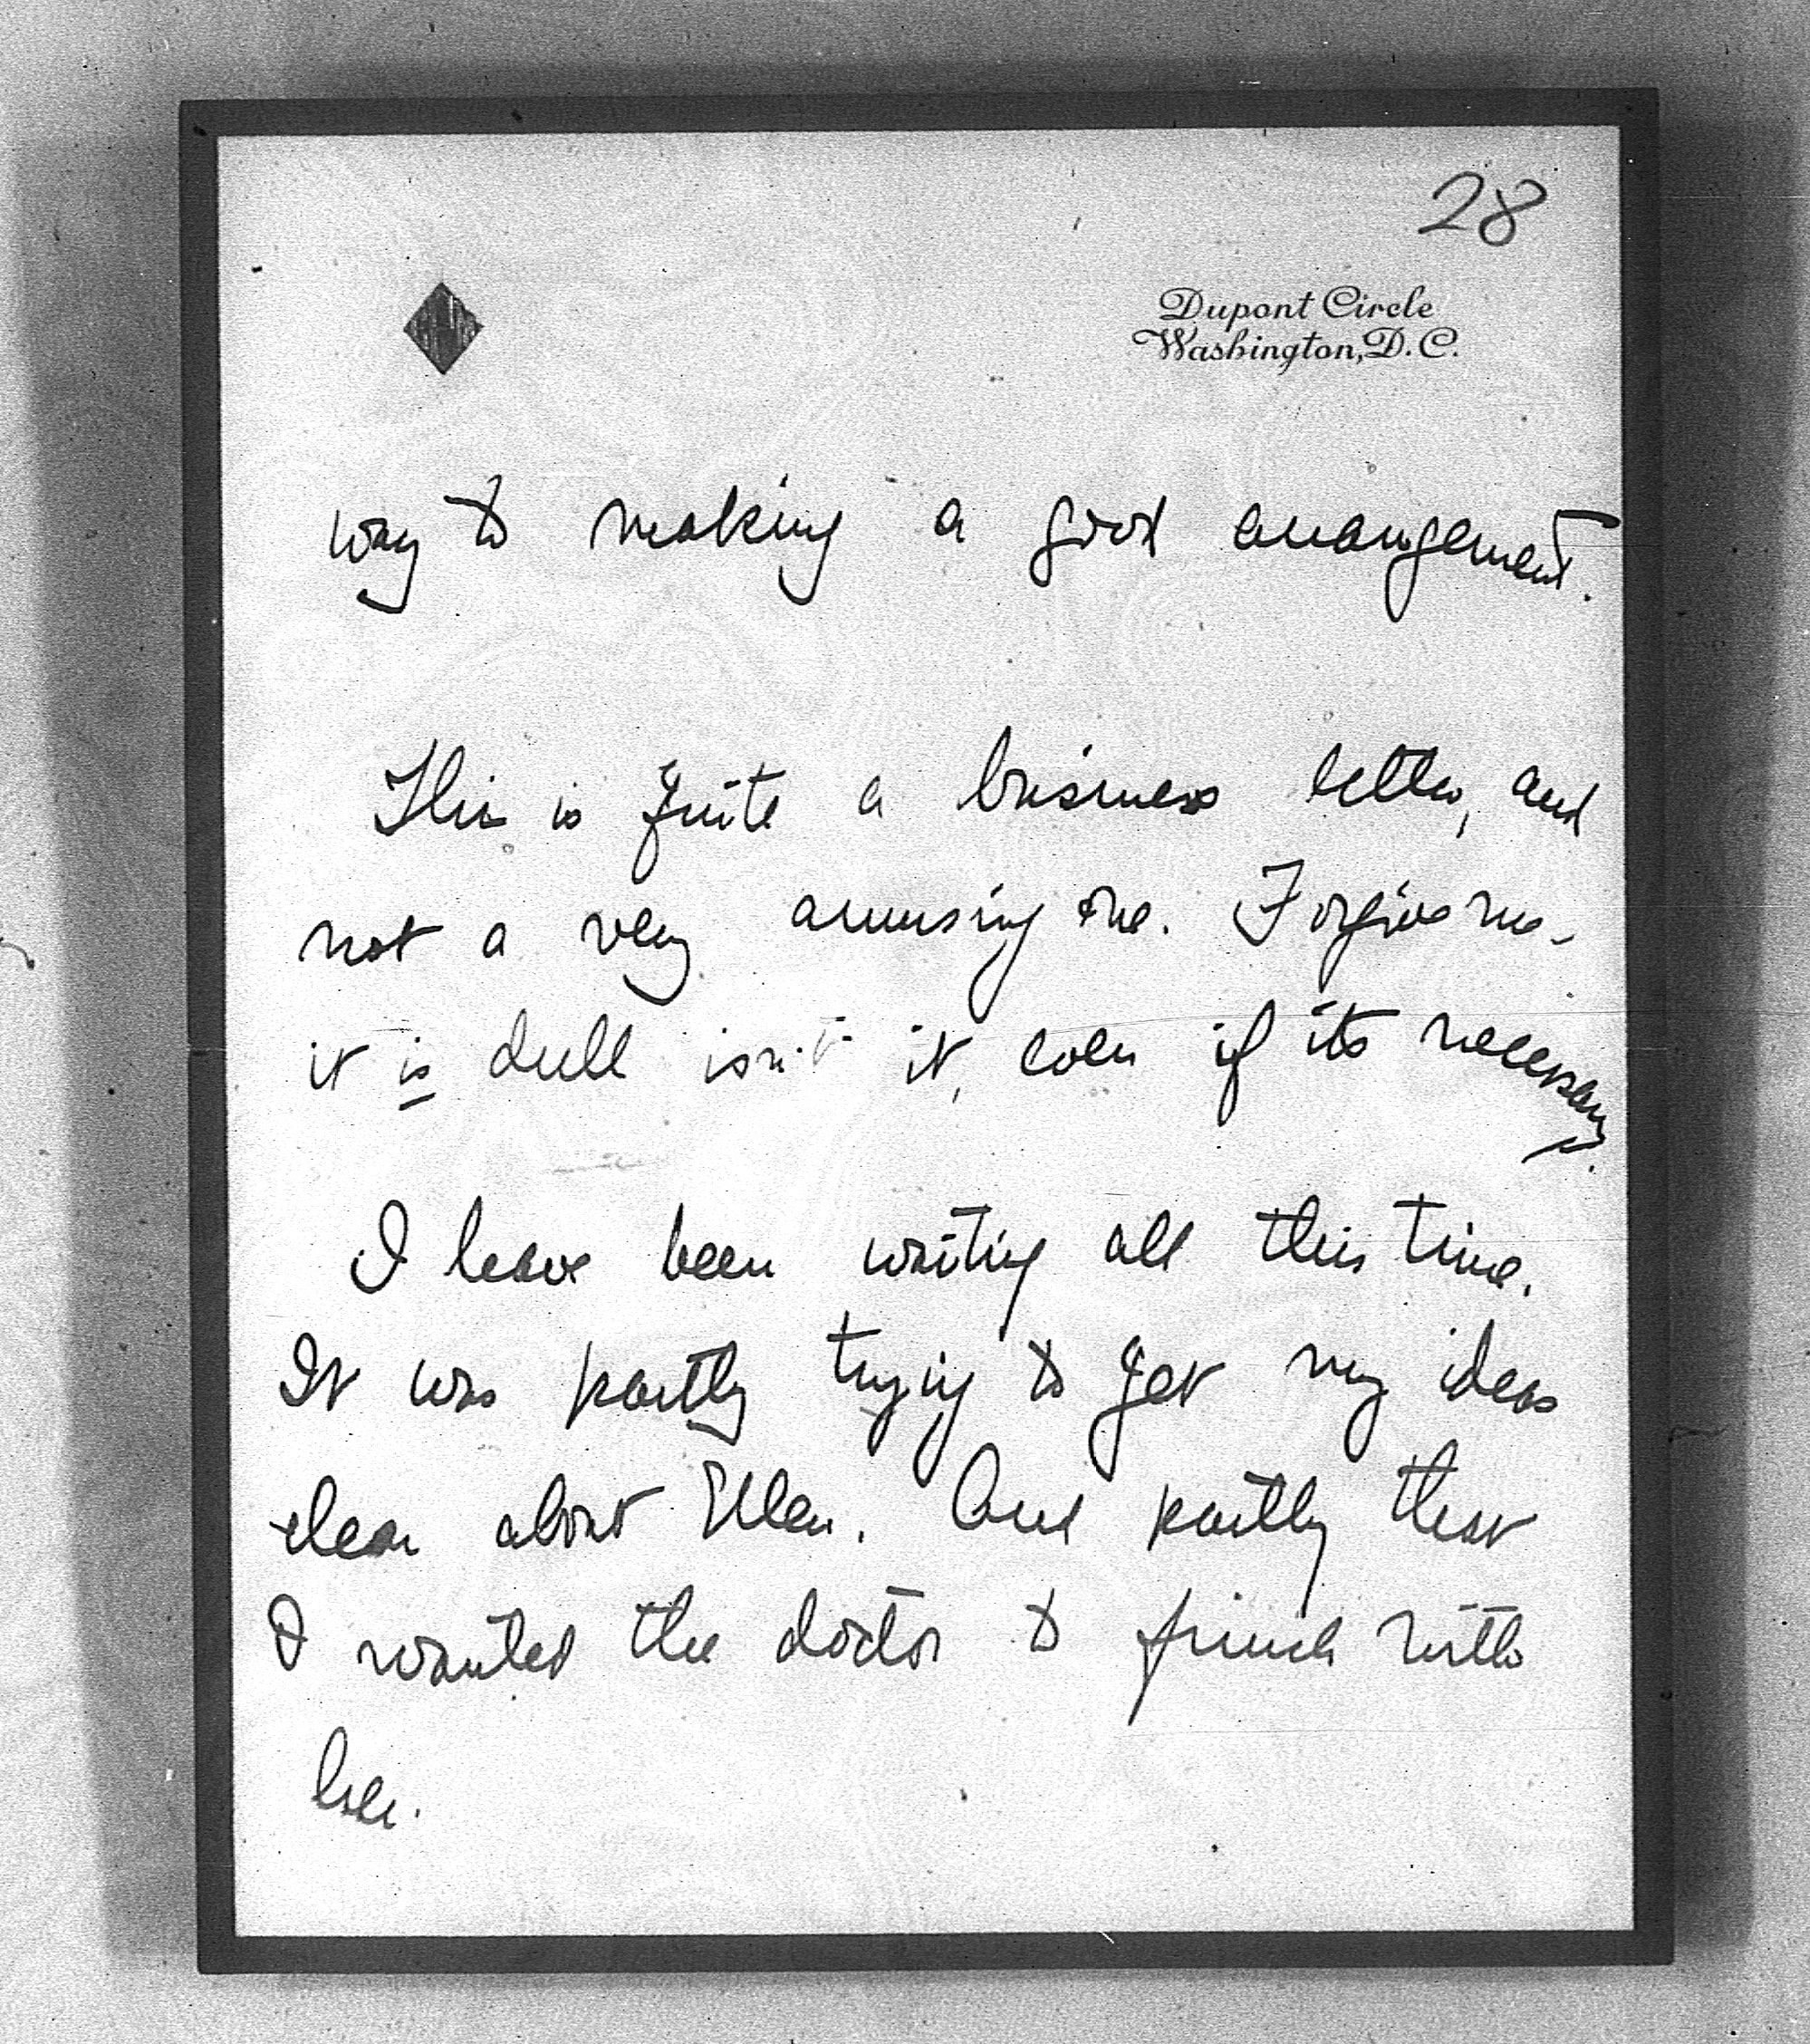 28
Dupont Circle
Washington, D.C.
way to making a good arrangement.
This is quite a business letter, and
not a very amusing one. Forgive me -
it is dull isn't it, even if its necessary.
I have been writing all this time.
It was partly trying to get my ideas
clear about Ellen. And partly that
I wanted the doctor to finish with
her.